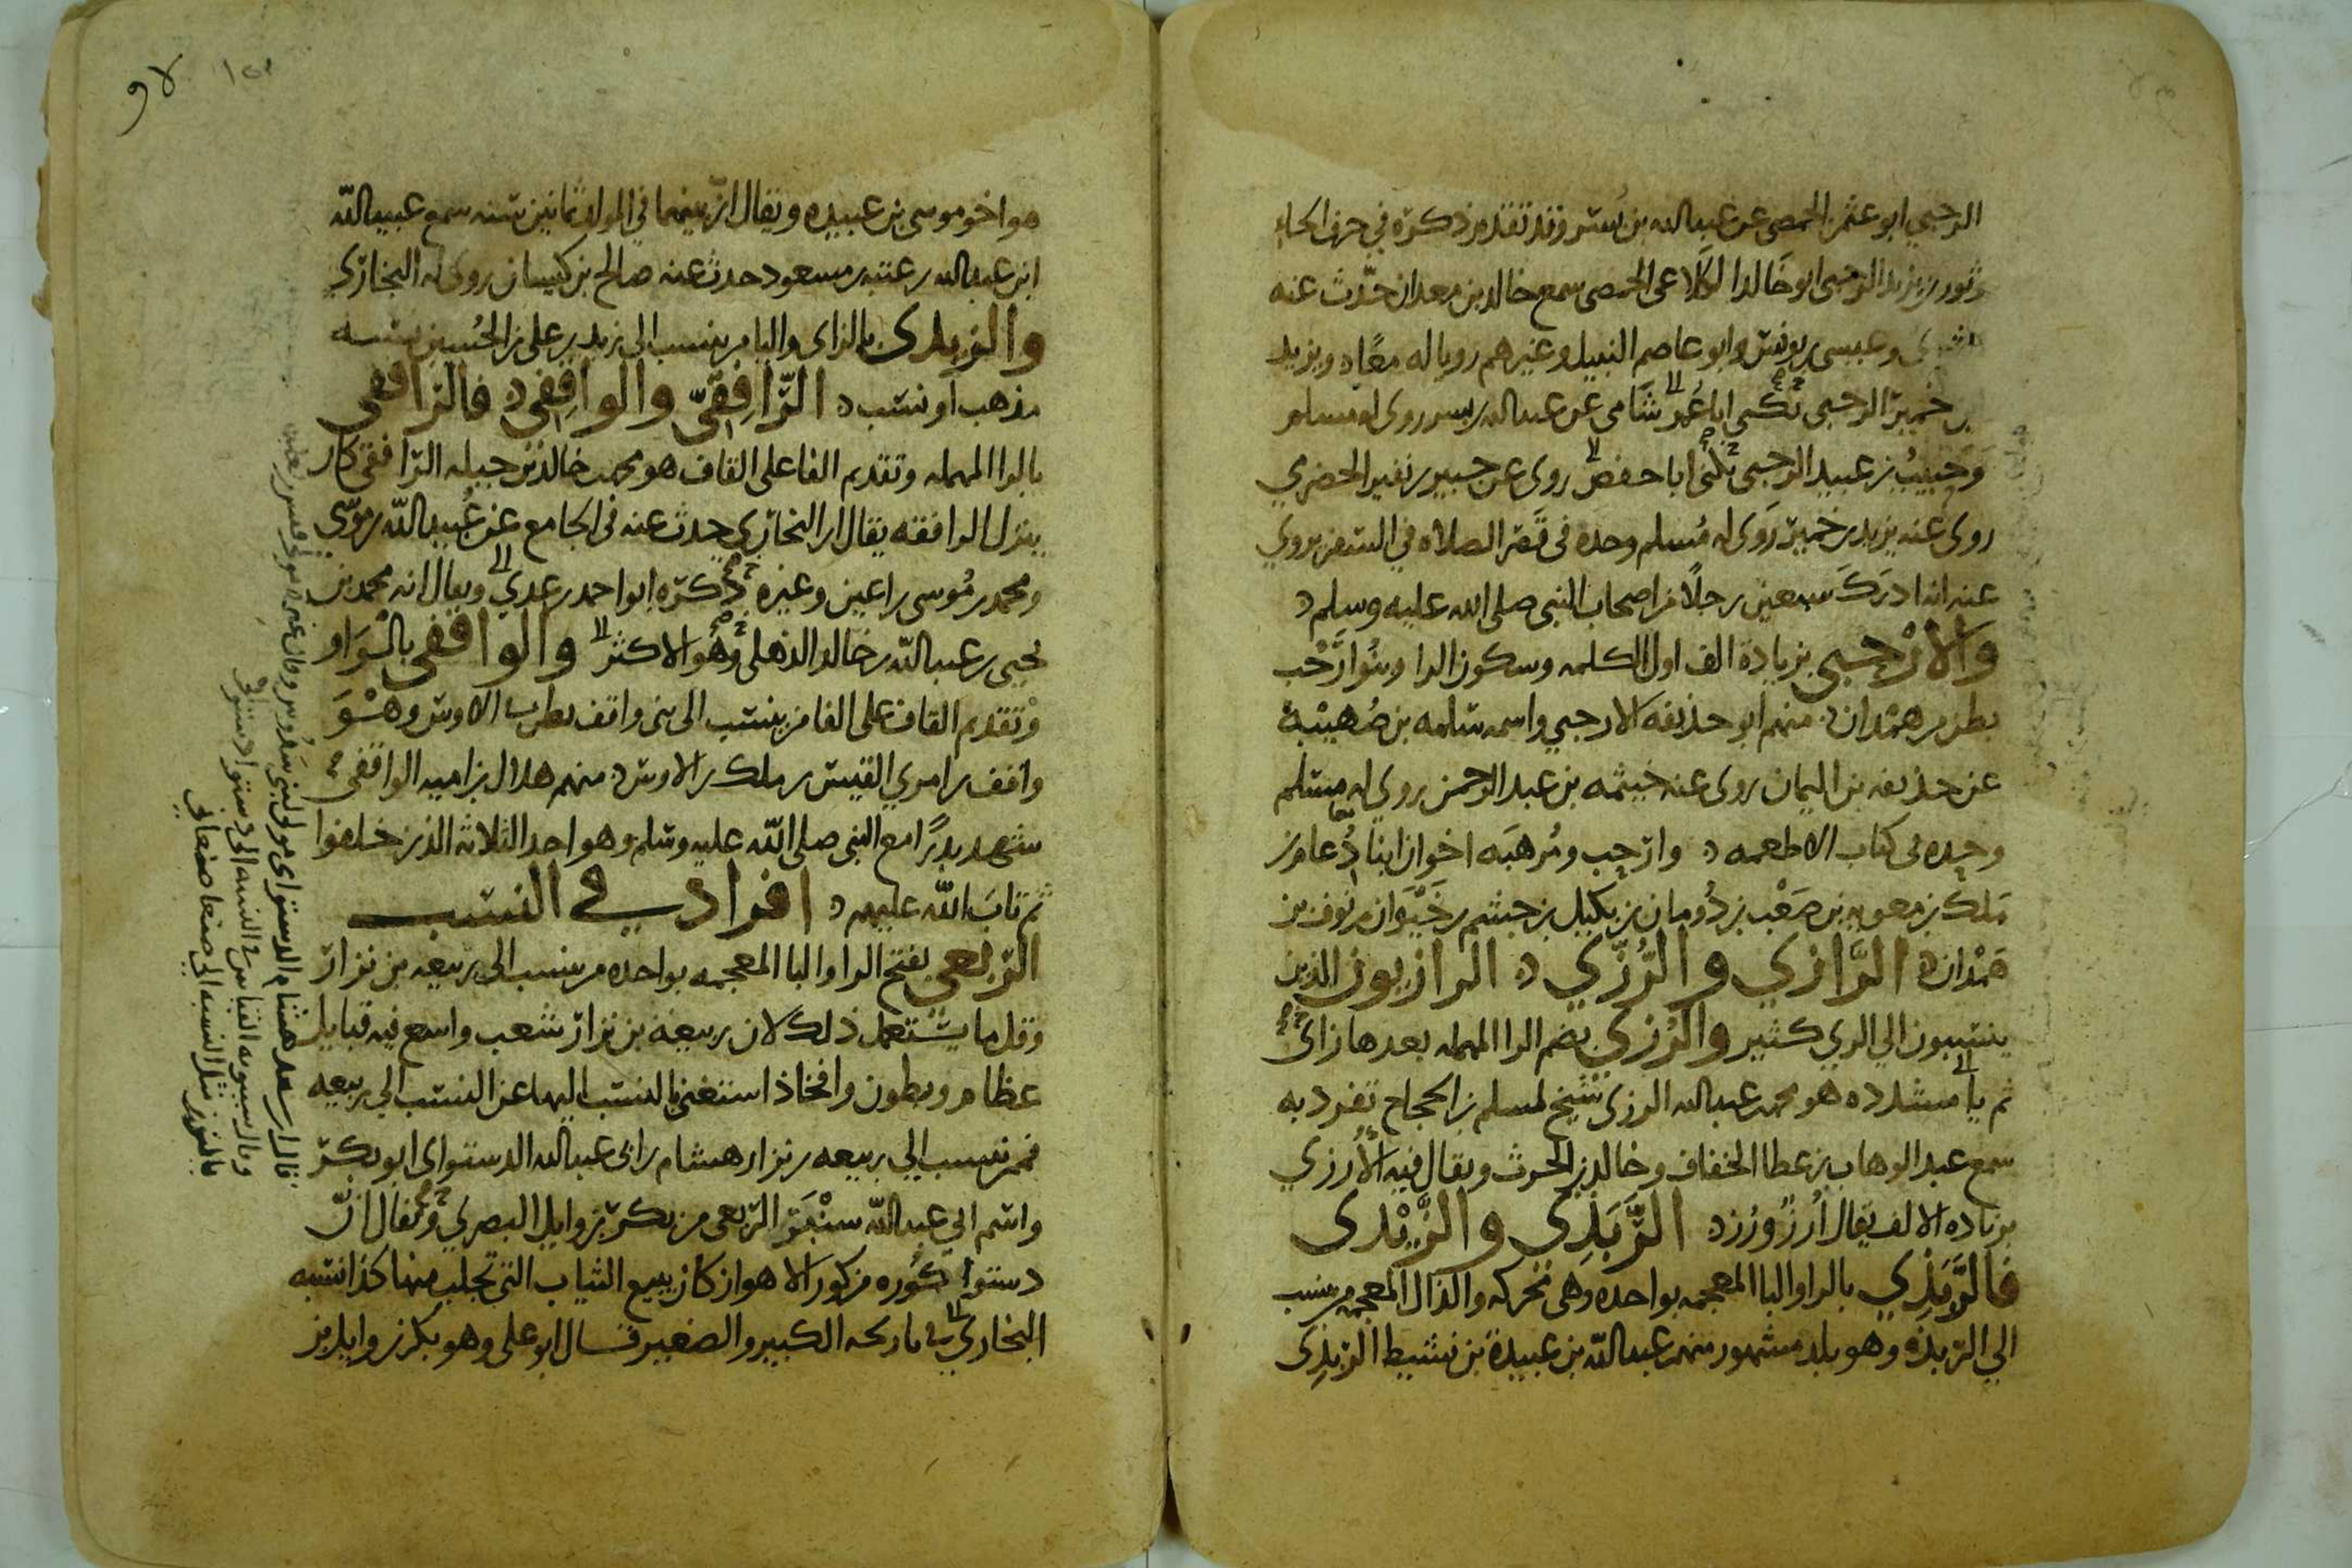 الرحبي ابو عثمن الحمصي عن عبد الله بن بُسر وقد تقدم ذكره في حرف الحاء
وثور بن يزيد الرحبي ابو خالد الكلاعي الحمصي سمع خالد بن معدان حدّث عنه
وعيسى بن يونس وابو عاصم النبيل وغيرهم رويا له معًا د ويزيد
بن خمير الرحبي يكنى ابا عُمر شَامي عن عبد الله بن بسر روى له مسلم
وَحبيبُ بن عبيد الرحبي يكنى ابا حفص روى عن جبير بن نفير الحضرمي
روى عنه يزيد بن خمير رَوى له مُسلم وحده في قصر الصلاه في السفر يروي
عنه انه ادرَكَ سبعين رجلًا من اصحاب النبي صلى الله عليه وسلم د
وَالارْحبي بزيادة الف اول الكلمه وسكون الرا وبنُوا ارْحب
بطن من همْدان د منهم ابو حذيفه الارحبي واسمه سلمه بن صُهيْبة
عن حذيفه بن اليمان روى عنه خيثمه بن عبد الرحمن روي له مسلم
وحده في كتاب الاطعمه د وارحب ومُرهبَه اخوان ابنا دُعام بن
مَلك بن معويه بن صَعْب بن دُومان بن بكيل بن جشم بن خَيْوَان بن نوف بن
همْدان د الرَّازي والرُّزّي د الرازيون الذين
ينتسبون الي الري كثير والرُزي بضم الرا المهمله بعدها زاى
ثم يا مشدده هو محمد بن عبد الله الرزي شيخ لمسلم بن الحجاج تفرد به
سمع عبد الوهاب بن عطا الخفاف وخالد بن الحرث ويقال فيه الأُرزي
بزياده الالف يقال اُرزٌ ورُز د الرَّبَذِي والزَّيْدى
فالرَّبَذِي بالرا والبا المعجمه بواحده وهي متحركه والذال المعجمه من ينسب
الي الربذه وهو بلد مشهور منهم عبد الله بن عبيدة بن نشيط الربذِى
هو اخو موسى بن عبيده ويقال ان بينهما في المولد ثمانين سنه سمع عبيد الله
ابن عبد الله بن عتبه بن مسعود حدث عنه صالح بن كيسان روى له البخاري
والزيدى بالزاى واليا من ينسب الى زيد بن علي بن الحُسين نسبه
مذهب او نسَب د الرَّافِقيّ والواقِفي د فالرافقي
بالرا المهمله وتقديم الفا على القاف هو محمد بن خالد بن جبله الرافقي كان
ينزل الرافقه يقال ان البخاري حدث عنه في الجامع عن عُبيد الله بن موسى
ومحمد بن مُوسى بن اعين وغيره ذكره ابو احمد بن عدي ويقال انه محمد بن
يحيى بن عبد الله بن خالد الذهلي وهُو الاكثر والواقفي بالوَاو
وتقديم القاف على الفا من ينسب الى بني واقف بطن من الاوس وهُوَ
واقف بن امري القيس بن ملك بن الاوس د منهم هلال بن اميه الواقفي
شهد بدرًا مع النبي صلى الله عليه وسلم وهو احد الثلاثه الذين خلفوا
ثم تابَ الله عليهم د افراد في النسب
الرَبعي بفتح الرا والبا المعجمه بواحده من ينسب الى ربيعه بن نزار
وقل ما يستعمل ذلك لان ربيعة بن نزار شعب واسع فيه قبايل
عظام وبطون وافخاذ استغني بالنسب اليها عن النسب الي ربيعه
فممن نسب الي ربيعه بن نزار هشام بن ابي عبد الله الدستواى ابو بكر
واسم ابي عبد الله سنْبَر الربعي من بكر بن وايل البصري ويقال ان
دستوا كُوره من كور الاهواز كان يبيع الثياب التي تجلب منها كذا نسبه
البخاري في تاريخه الكبير والصغير قال ابو علي وهو بكر بن وايل بن
قال ابن سعد هشام الدستواى مولى لبني سَدُوس وقال غيره مولى
وقال سيبويه القياس في النسب الى دستوا دستواى
بالنون مثل النسب الى صنعا صنعاني